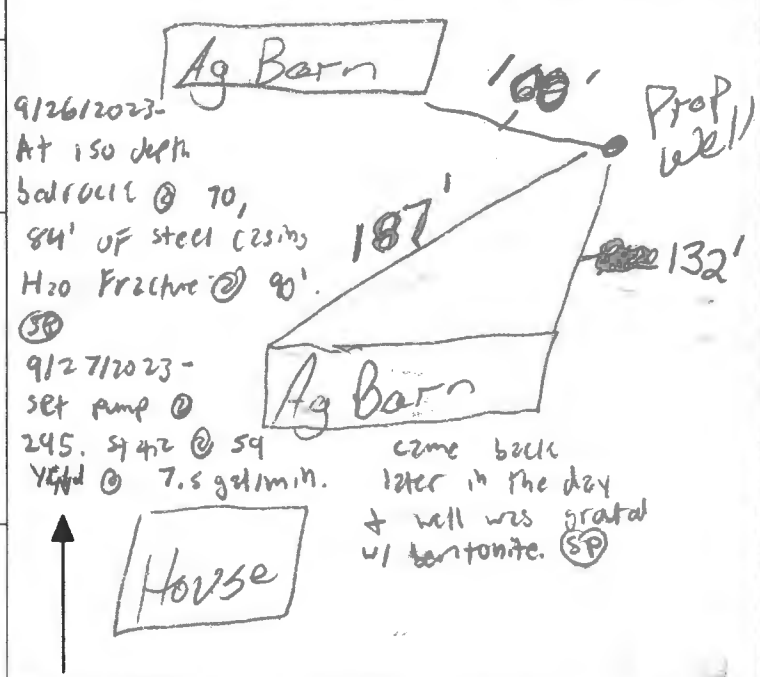 Ag Barn
Prop
Well
9/26/2023-
At 150 depth
bedrock @ 70,
84' of steel casing
H20 Fracture @ 90'.
SP
187'
132'
9/27/2023-
set pump @
245. static @ 59
Yield @ 7.5 gal/min.
Ag Barn
came back
later in the day
& well was grouted
w/ bentonite. SP
House